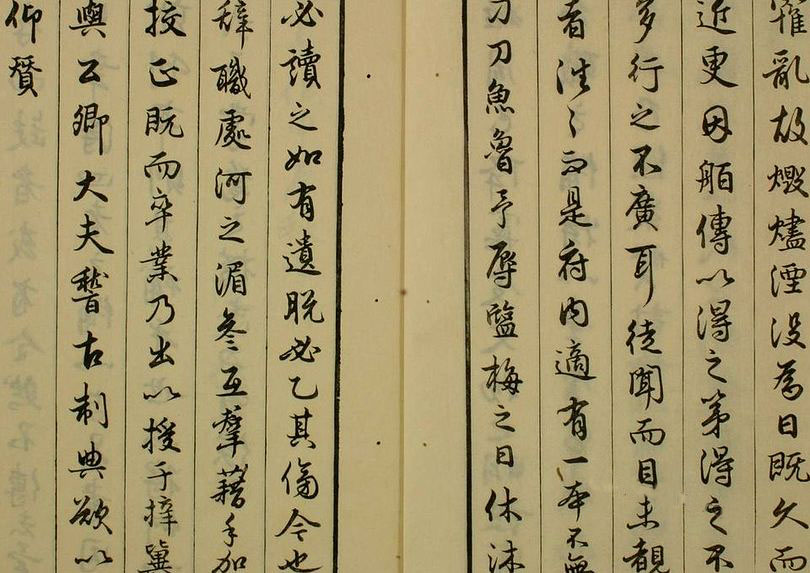 罹亂故燬燼湮没為日既久而
近更因舶傳以得之第得之不
多行之不廣耳徒聞而目未覩
者往々而是府内適有一本不無
刀魚魯予辱鹽梅之日休沐
必讀之如有遺脱必乙其傍今也
辭職處河之湄參互羣籍手加
挍正既而卒業乃出以授于
與公卿大夫稽古制典欲以
仰贊